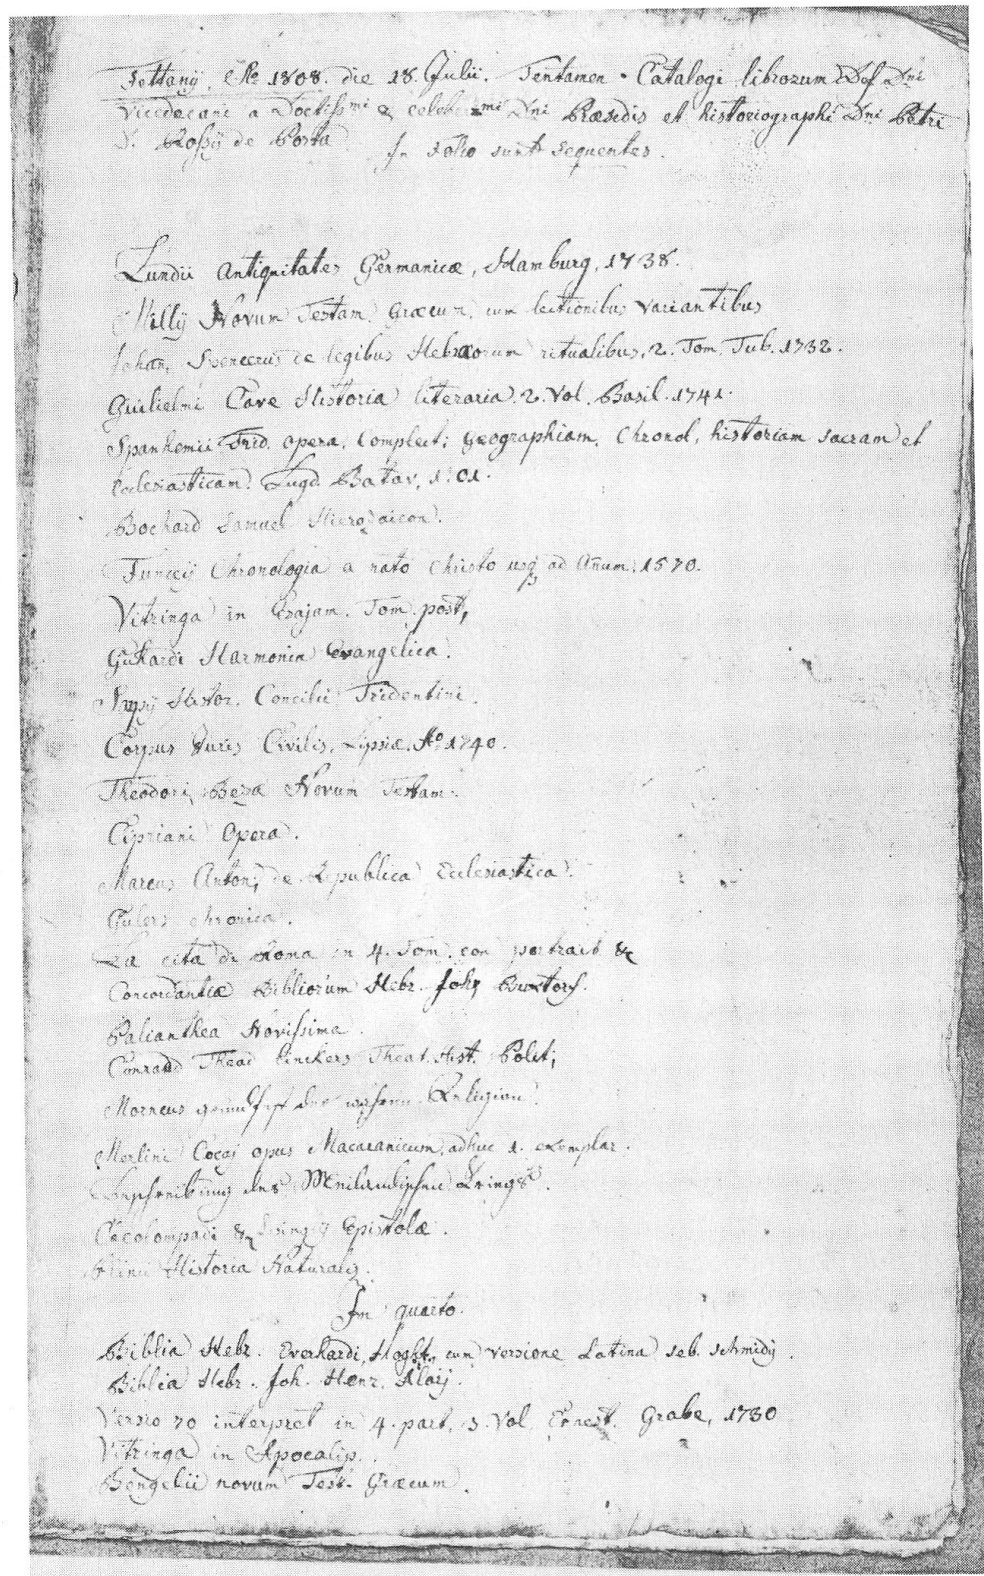 Fettany, Ao 1808. die 18. Julii. Tentamen Catalogi librorum Def Dni
Vicidecani a Doctissmi & celeberrmi Dni Præsidis et historiographi Dni Petri
D. Rosÿ de Porta
In Folio sunt sequentes.
Lundii Antiquitates Germanicæ, Hamburg, 1738.
Millÿ Novum Testam. Græcum, cum lectionibus variantibus
Johan. Spencerus de legibus Hebræorum ritualibus, 2. Tom. Tub. 1732.
Guilielmi Cave Historia literaria. 2. Vol. Basil. 1741.
Spanhemii Frid. opera, Complect; Geographiam, Chronol, historiam sacram et
Ecclesiasticam. Lugd. Batav, 1701.
Bochard Samuel Hierozoicon.
Funccÿ Chronologia a nato Christo usq ad Anum, 1570.
Vitringa in Esajam. Tom. post,
Harmonia Evangelica.
Histor. Concilii Tridentini.
Corpus Juris Civilis, Lipsiæ. Ao 1740.
Theodori Bezæ Novum Testam:
Cipriani Opera.
Marcus Anton; de Republica Ecclesiastica.
Gulers chronica.
La cita di Roma in 4. Tom. con portrait &
Concordantiæ Bibliorum Hebr. Joh, Buxtorf.
Palianthea Novissima.
Conradd Thead Linckers Theat. Hist. Polit;
Morneus der wahren Religion.
Merlini Cocaj opus Macaranicum, adhuc 1. exemplar.
Beschreibung des Meiländischen Kriegs.
Oecolompadi & Zwinglÿ Epistolæ.
Plinii Historia Naturalis.
In quarto.
Biblia Hebr. Everhardi, Hoght, cum versione Latina seb. schmidÿ.
Biblia Hebr. Joh. Henr. Maij.
Versio 70 interpret in 4. part. 3. Vol. Ernest. Grabe, 1730
Vitringa in Apocalip.
Bengelii novum Test. Græcum.